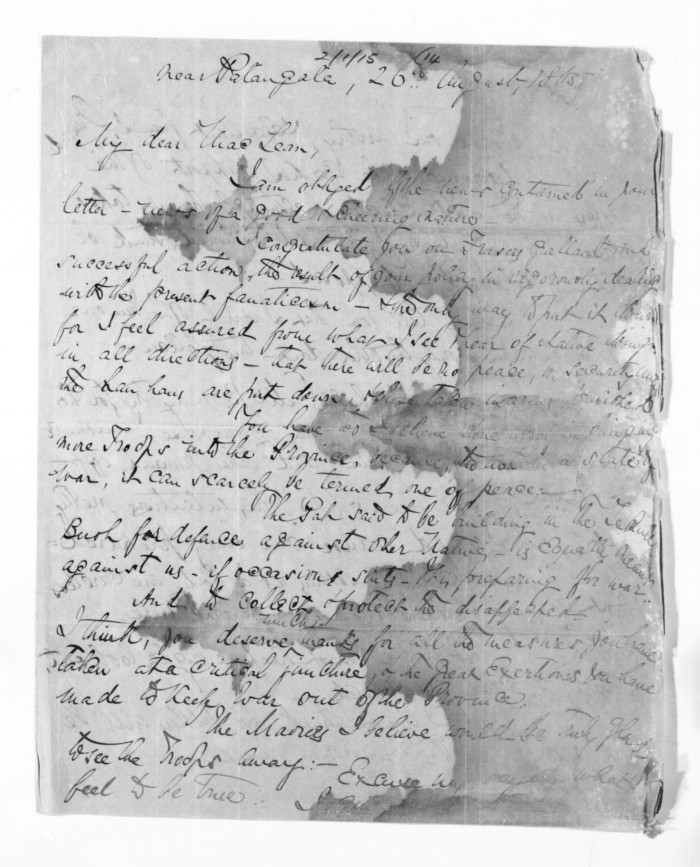 2/1/15 14
near Patangata, 26th August, 1865
My dear MacLean,
I am obliged for the news contained in your
letter - news of a good & cheering nature -
I congratulate you on Frasers gallant and
successful action, the result of your policy in vigorously dealing
with the present fanaticism - & the only way to put it down
for I feel assured from what I see & hear of Native doings
in all directions - that there will be no peace, or security until
the Hau haus are put down, & those taken in arms, punished
You have I believe done
more Troops into the Province, because, tho not in a state of
war, it can scarcely be termed, one of peace -
The Pah said to be building in the
Bush for defence against other Natives - is equally
against us - if occasions suits - Tis preparing for war.
And to collect & protect the disaffected.
I think, you deserve much thanks for all the measures you have
taken at a critical juncture, & the great exertions you have
made to keep war out of the Province.
The Maories I believe would be only glad
to see the Troops away: - Excuse my saying what I
feel to be true.